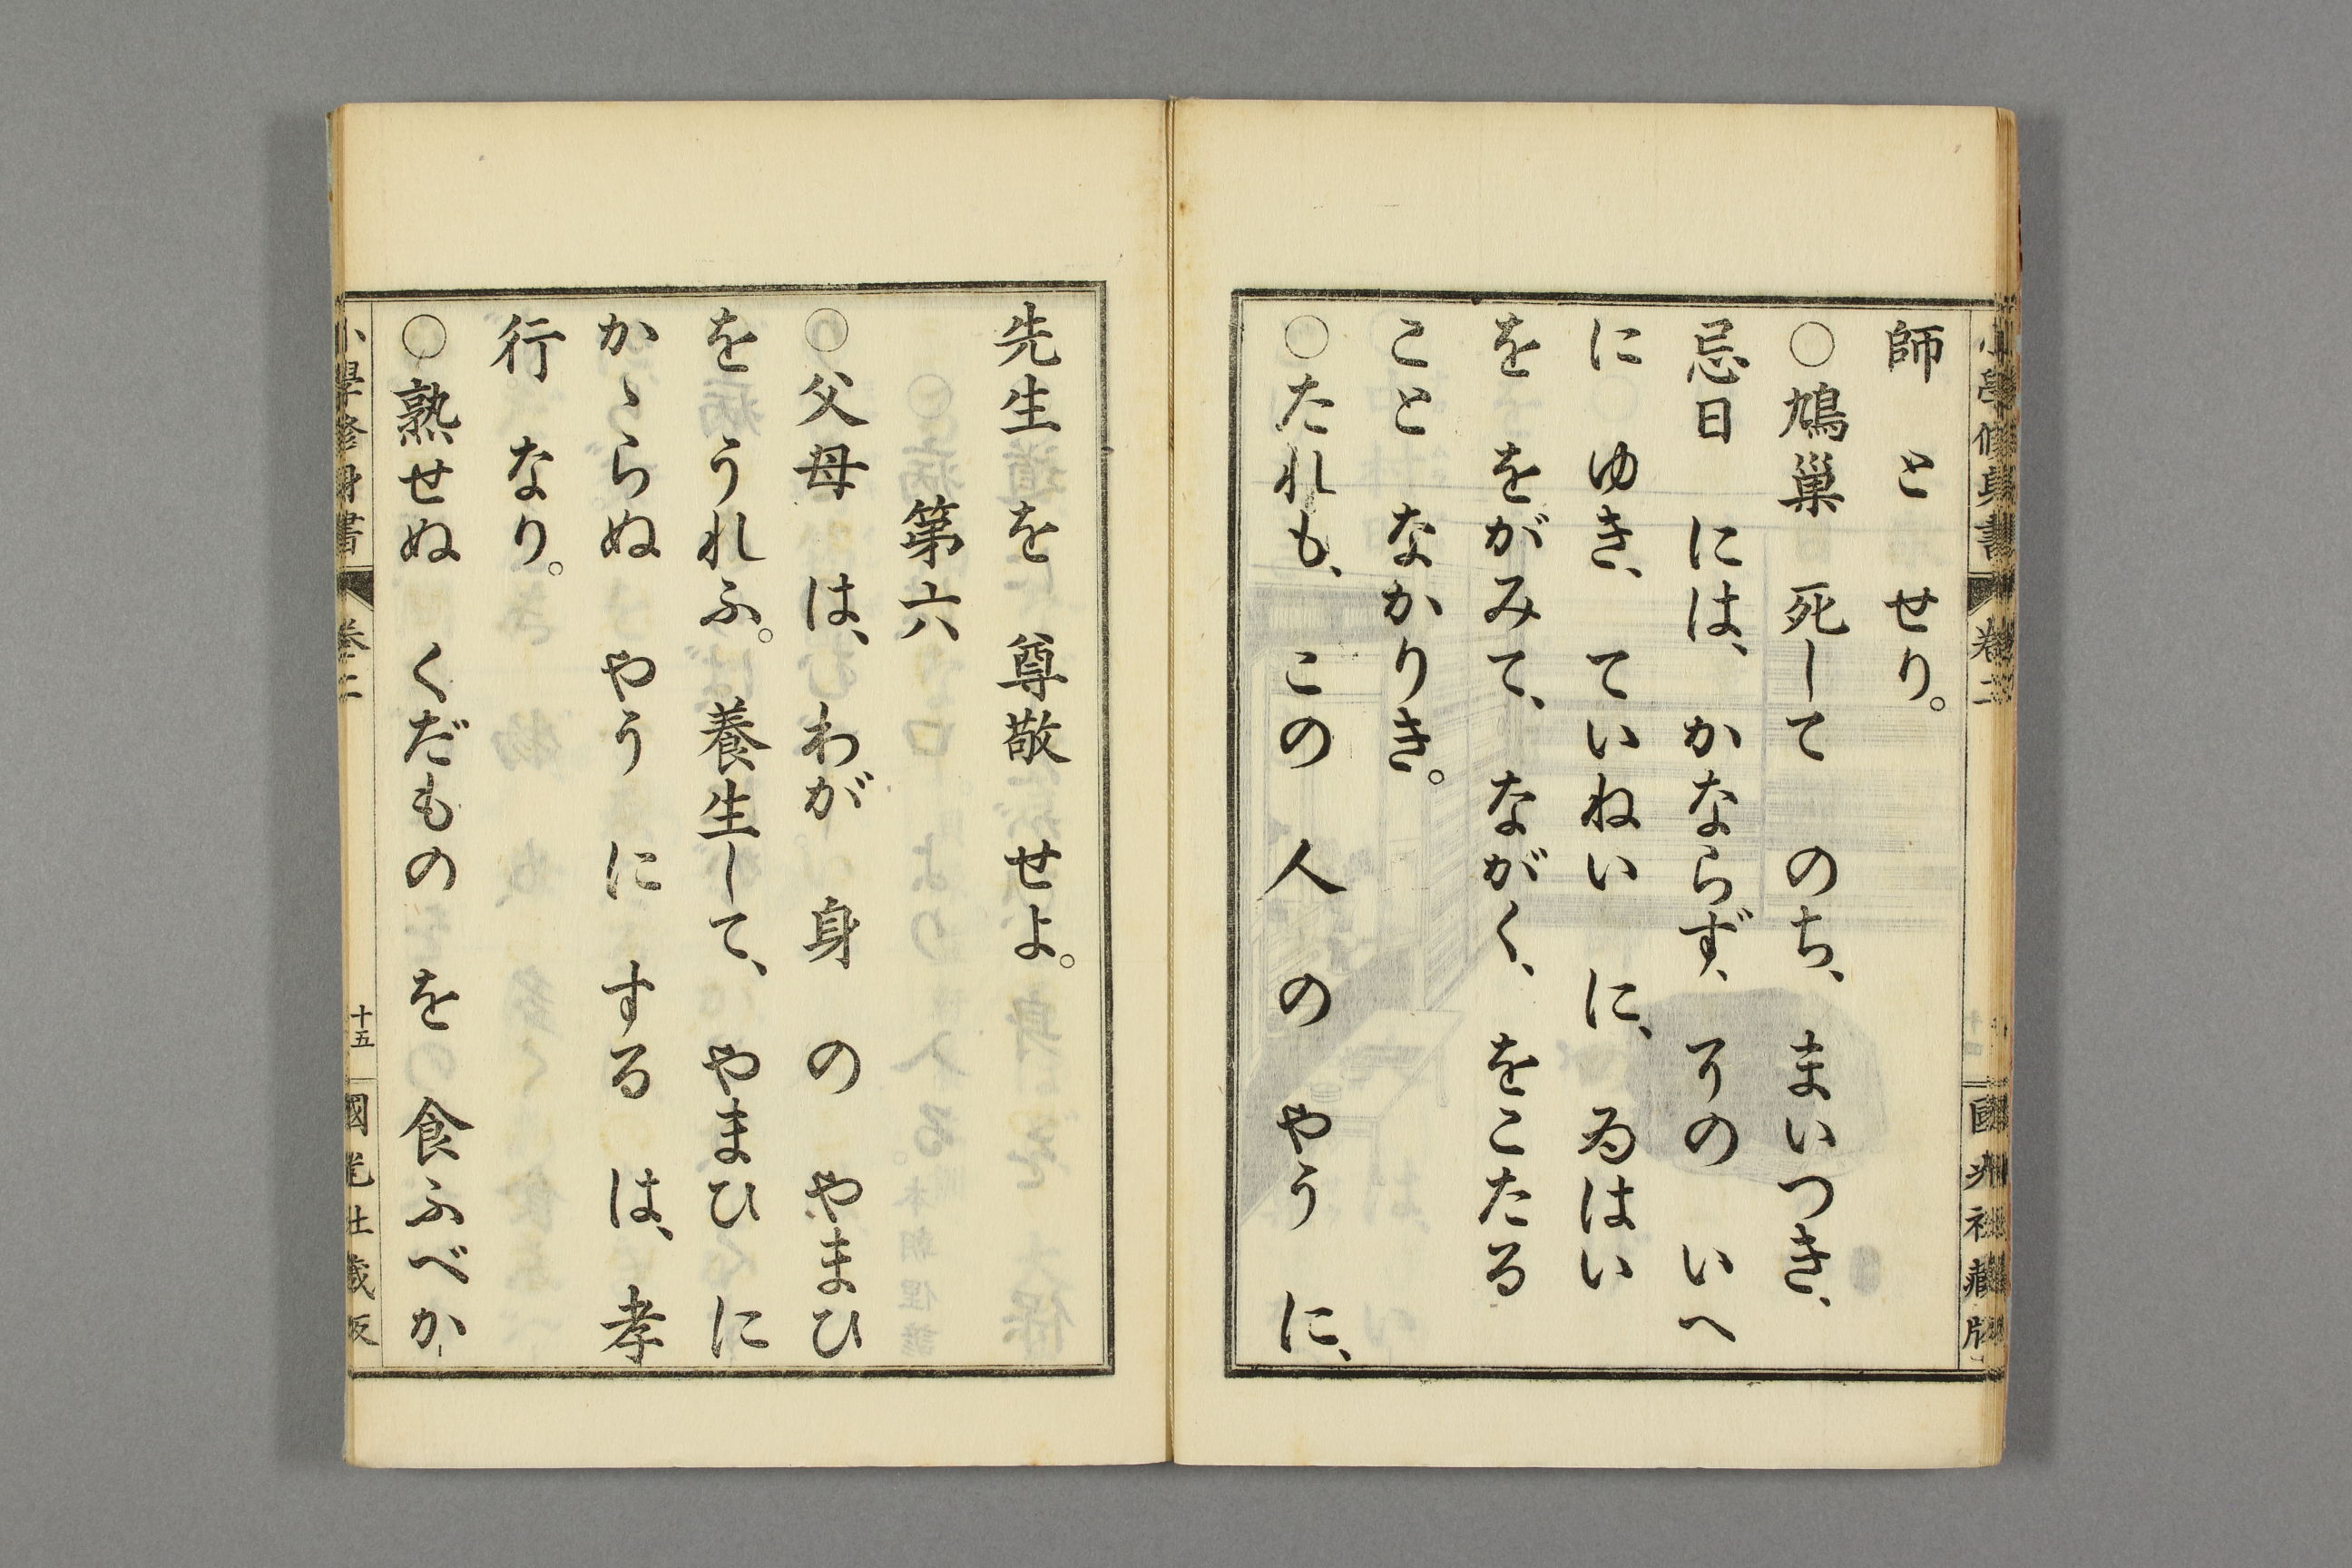 師 と せり。
○鳩巣 死して のち、 まいつき、
忌日 には、 かならず、 その いへ
に ゆき、 ていねい に、 ゐはい
を をがみて、 ながく、 をこたる
こと なかりき。
○たれも、 この 人 の やう に、
先生 を 尊敬 せよ。
第六
○父母 は、 わが 身 の やまひ
を うれふ。 養生して、 やまひ に
かゝらぬ やう に する は、 孝
行 なり。
○熟せぬ くだもの を 食ふべか
小學修身書 卷二 十五 國光社藏版